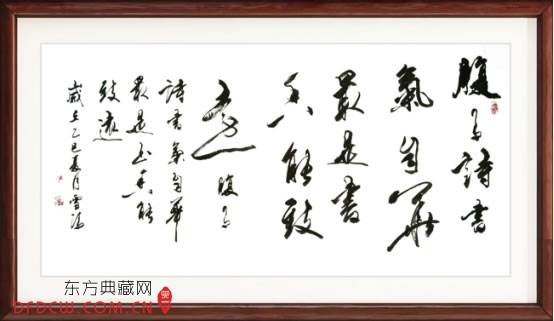 腹有詩書
氣自華
最是書
香能致
遠 腹有
詩書氣自華
最是書香能
致遠
歲在乙巳夏月雪
东方典藏网
DFDCW.COM.CN